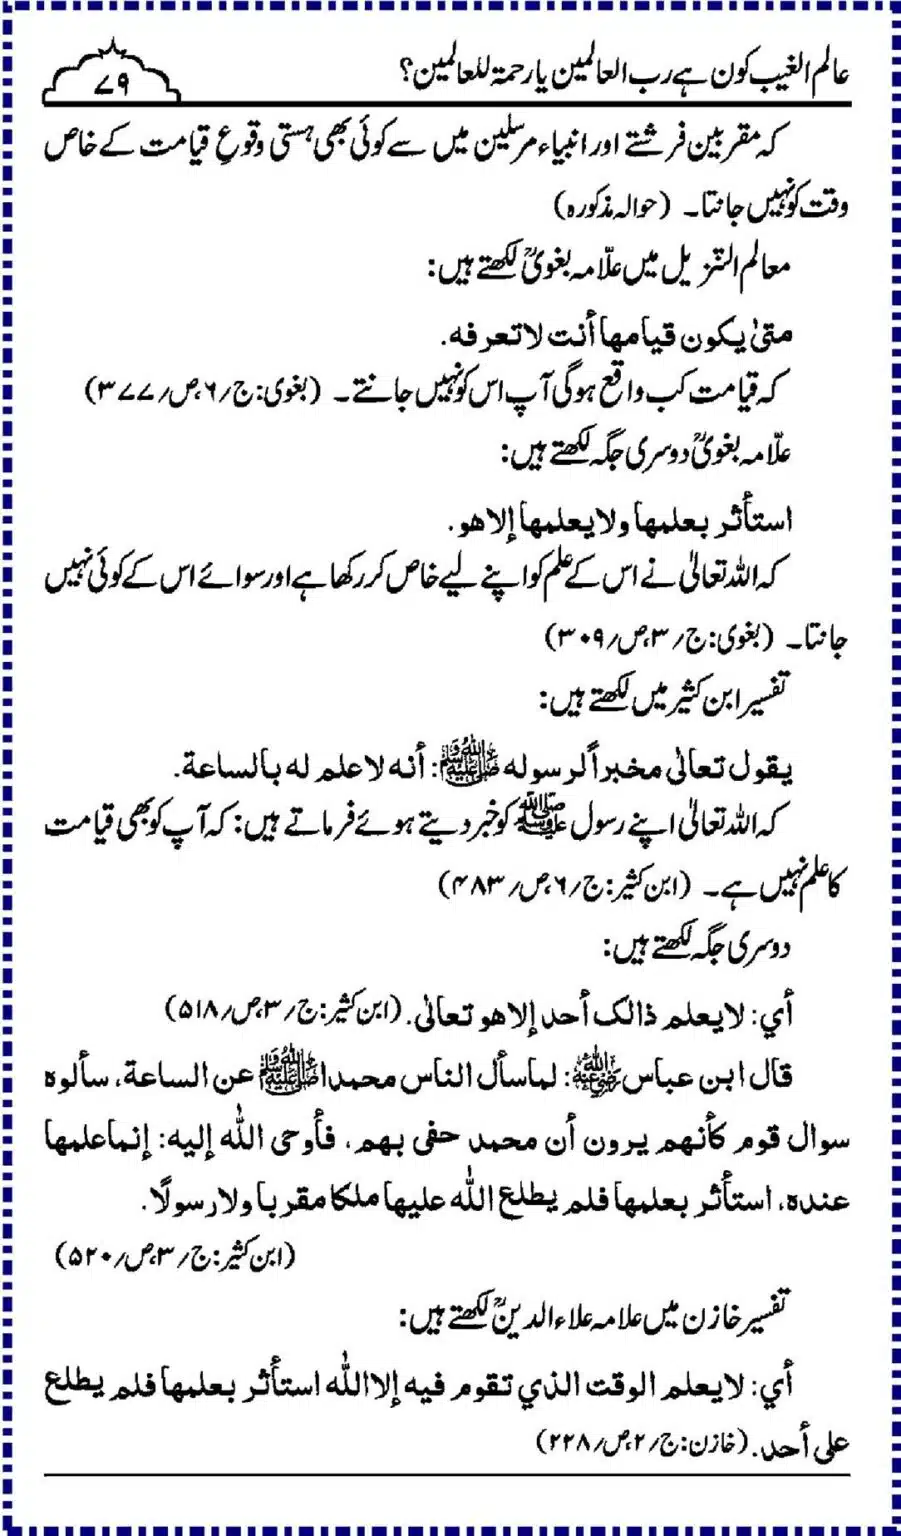 عالم الغیب کون ہے رب العالمین یا رحمۃ للعالمین؟
۷۹
کہ مقربین فرشتے اور انبیاء مرسلین میں سے کوئی بھی ہستی وقوعِ قیامت کے خاص
وقت کو نہیں جانتا۔ (حوالہ مذکورہ)
معالم التنزیل میں علّامہ بغویؒ لکھتے ہیں:
متیٰ یکون قیامها أنت لا تعرفه.
کہ قیامت کب واقع ہوگی آپ اس کو نہیں جانتے۔ (بغوی: ج؍۶،ص؍۳۷۷)
علّامہ بغویؒ دوسری جگہ لکھتے ہیں:
استأثر بعلمها ولا یعلمها إلا هو.
کہ اللہ تعالیٰ نے اس کے علم کو اپنے لیے خاص کر رکھا ہے اور سوائے اس کے کوئی نہیں
جانتا۔ (بغوی: ج؍۳،ص؍۳۰۹)
تفسیر ابن کثیر میں لکھتے ہیں:
یقول تعالیٰ مخبراً لرسوله ﷺ: أنه لا علم له بالساعة.
کہ اللہ تعالیٰ اپنے رسول ﷺ کو خبر دیتے ہوئے فرماتے ہیں: کہ آپ کو بھی قیامت
کا علم نہیں ہے۔ (ابن کثیر: ج؍۶،ص؍۴۸۳)
دوسری جگہ لکھتے ہیں:
أي: لا یعلم ذالک أحد إلا هو تعالیٰ. (ابن کثیر: ج؍۳،ص؍۵۱۸)
قال ابن عباس رضی اللہ عنہ: لما سأل الناس محمدا ﷺ عن الساعة، سألوه
سوال قوم کأنهم یرون أن محمد حفی بهم، فأوحی اللّٰه إلیه: إنما علمها
عنده، استأثر بعلمها فلم یطلع اللّٰه علیها ملکا مقربا ولا رسولًا.
(ابن کثیر: ج؍۳،ص؍۵۲۰)
تفسیر خازن میں علامہ علاء الدینؒ لکھتے ہیں:
أي: لا یعلم الوقت الذي تقوم فیه إلا اللّٰه استأثر بعلمها فلم یطلع
علی أحد. (خازن: ج؍۲،ص؍۲۲۸)